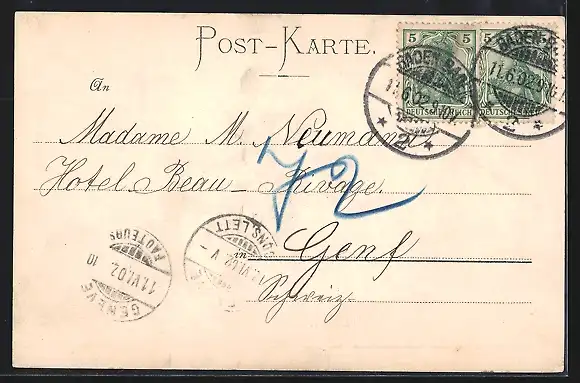 POST-KARTE.
5 5
DEUTSCHES REICH
BADEN-BADEN
11.6.02
* 2 *
An
Madame M. Neumann
Hotel Beau-Rivage.
72
in Genf
Schweiz
GENEVE
11.VI.02. 10
FACTEURS
CONS. LETT
VI.02. V